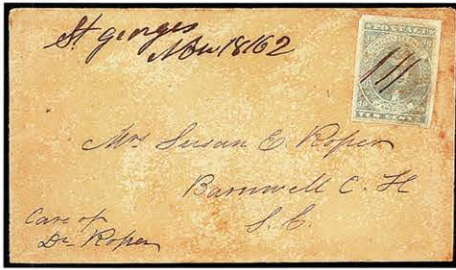 St georges
Nov 18/62
POSTAGE
TEN CENTS
Mrs Susan E. Roper
Barnwell C. H
S. C.
Care of
Dr Roper